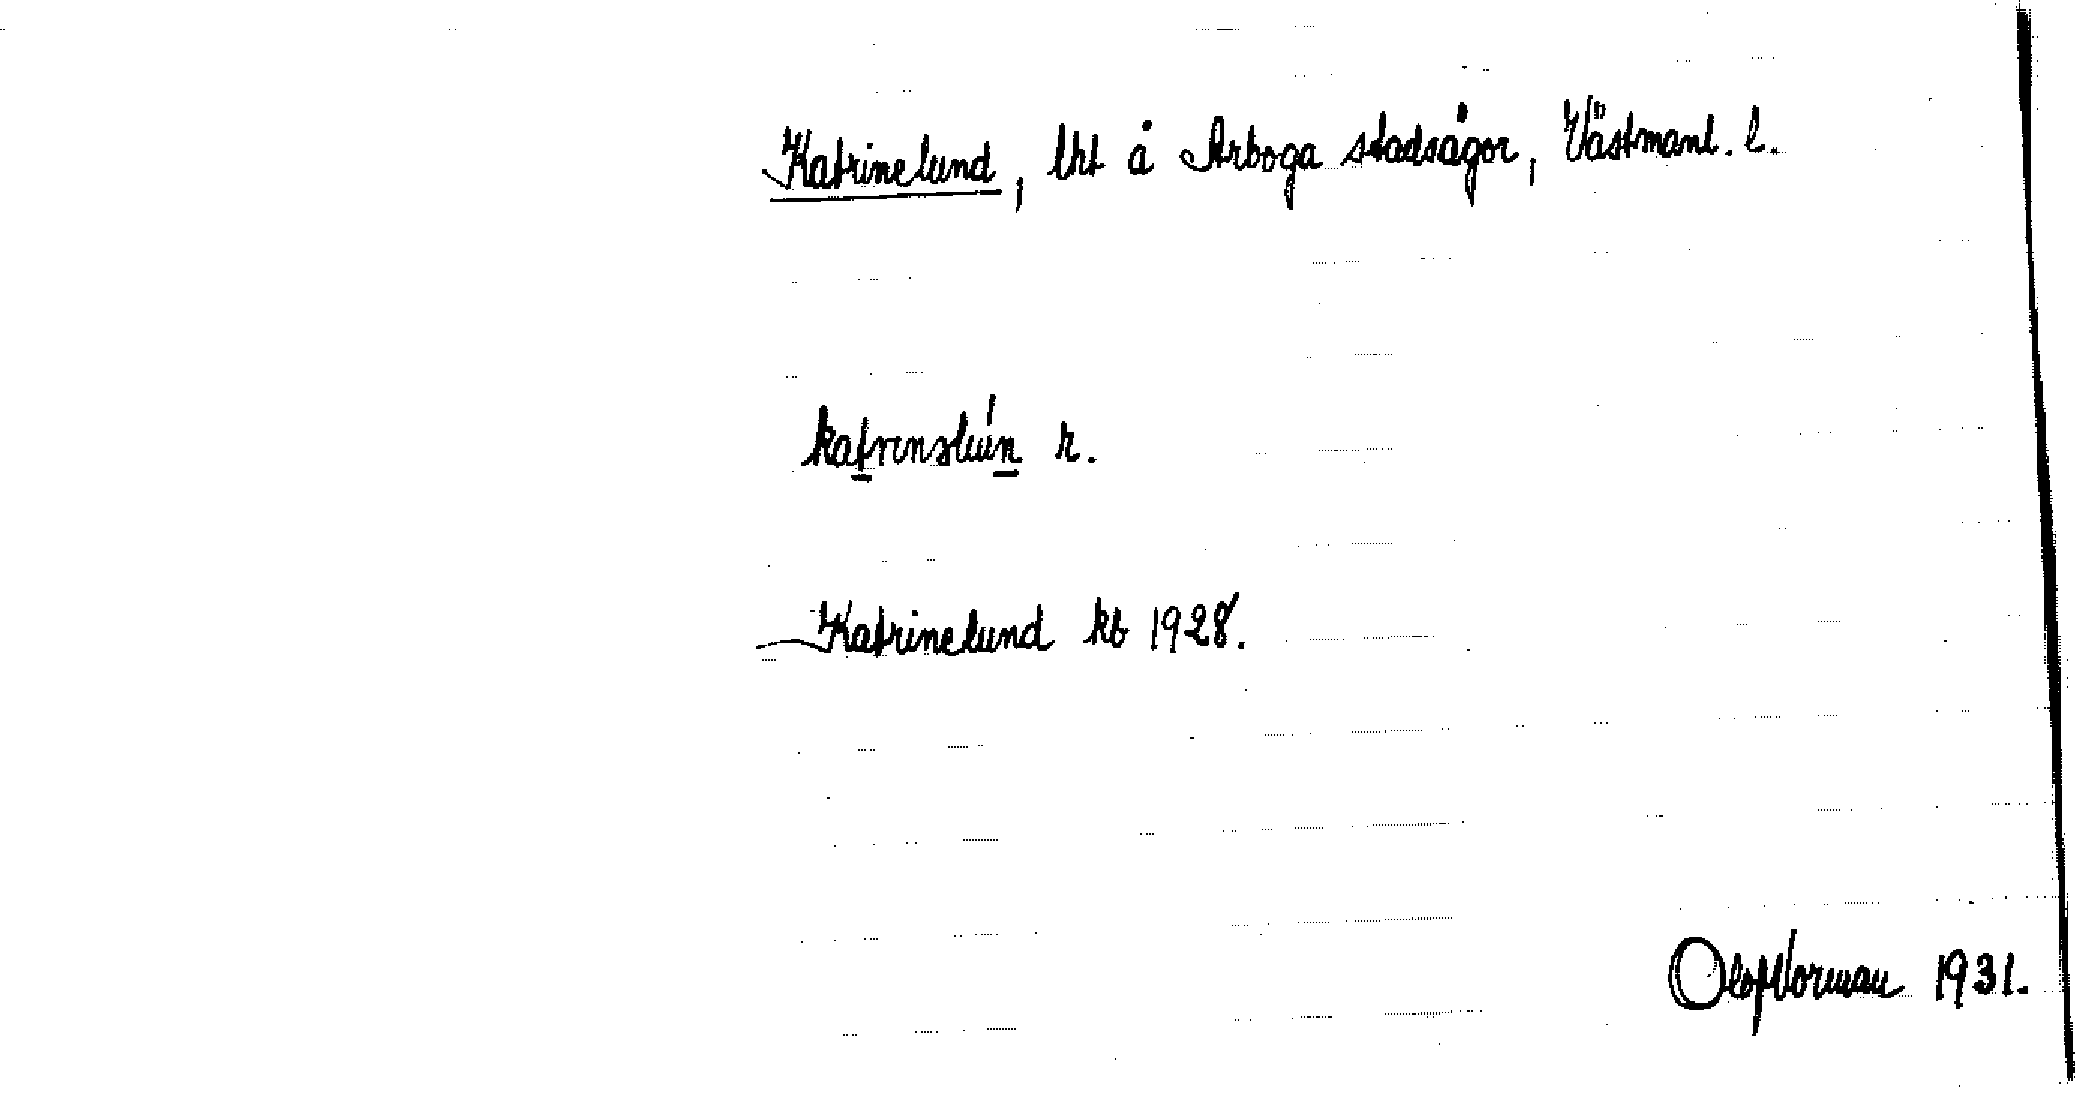 Katrinelund, lht å Arboga stadsågor, Västmanl. l.
r.
Katrinelund kb 1928.
Olof Norman 1931.